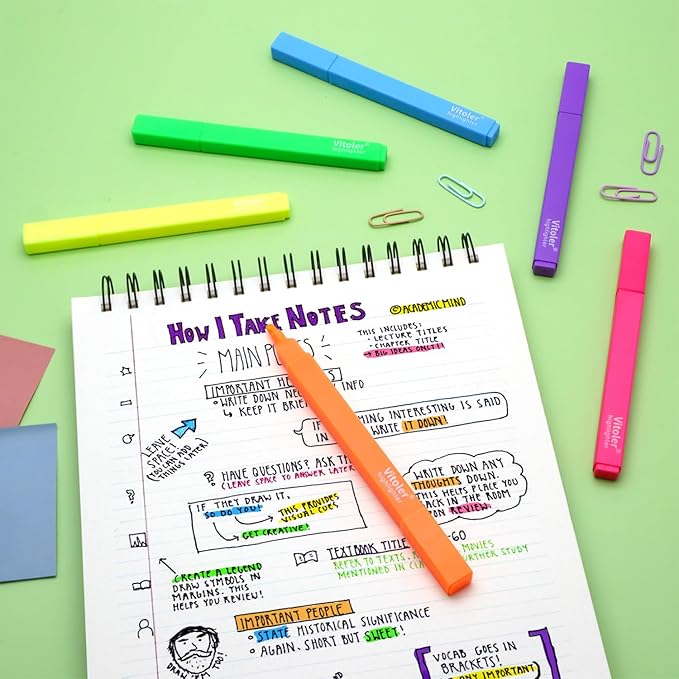 Vitoler®
highlighter
Vitoler®
highlighter
Vitoler®
highlighter
Vitoler®
highlighter
Vitoler®
highlighter
Vitoler®
highlighter
HOW I TAKE NOTES
©ACADEMICMIND
MAIN
THIS INCLUDES:
• LECTURE TITLES
• CHAPTER TITLE
→ BIG IDEAS ONLY!!
IMPORTANT
• WRITE DOWN INFO
↳ KEEP IT BRIEF
LEAVE
SPACE!
(YOU CAN ADD
THINGS LATER)
IF INTERESTING IS SAID
IN WRITE IT DOWN!
? HAVE QUESTIONS? ASK
(LEAVE SPACE TO ANSWER LATER
WRITE DOWN ANY
THOUGHTS DOWN.
THIS HELPS PLACE YOU
BACK IN THE ROOM
UPON REVIEW.
IF THEY DRAW IT,
SO DO YOU!
THIS PROVIDES
VISUAL CUES
GET CREATIVE!
CREATE A LEGEND
DRAW SYMBOLS IN
MARGINS. THIS
HELPS YOU REVIEW!
TEXTBOOK TITLE -60
REFER TO TEXTS, MOVIES
MENTIONED IN FURTHER STUDY
IMPORTANT PEOPLE
• STATE HISTORICAL SIGNIFICANCE
• AGAIN, SHORT BUT SWEET!
DRAW
'EM TOO!
VOCAB GOES IN
BRACKETS!
ANY IMPORTANT